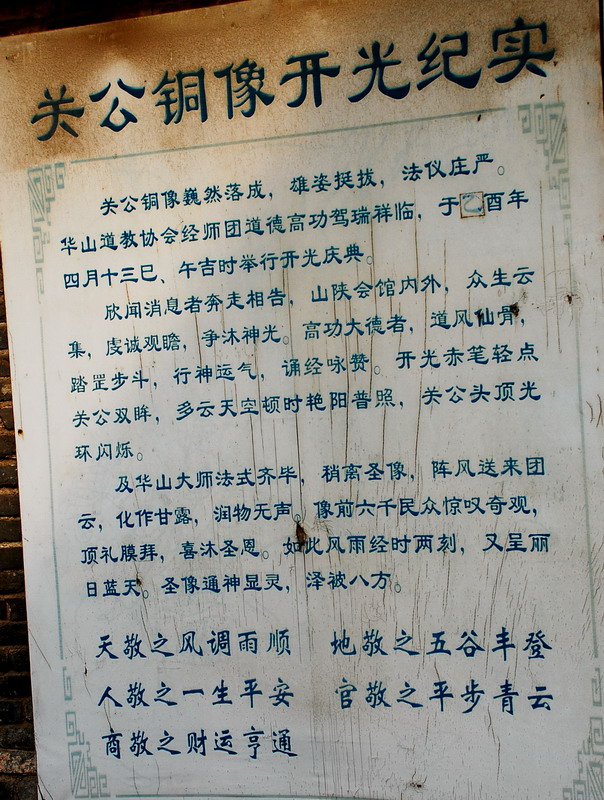 关公铜像开光纪实
关公铜像巍然落成，雄姿挺拔，法仪庄严。
华山道教协会经师团道德高功驾瑞祥临，于乙酉年
四月十三巳、午吉时举行开光庆典。
欣闻消息者奔走相告，山陕会馆内外，众生云
集，虔诚观瞻，争沐神光。高功大德者，道风仙骨，
踏罡步斗，行神运气，诵经咏赞。开光赤笔轻点
关公双眸，多云天空顿时艳阳普照，关公头顶光
环闪烁。
及华山大师法式齐毕，稍离圣像，阵风送来团
云，化作甘露，润物无声。像前六千民众惊叹奇观，
顶礼膜拜，喜沐圣恩。如此风雨经时两刻，又呈丽
日蓝天。圣像通神显灵，泽被八方。
天敬之风调雨顺 地敬之五谷丰登
人敬之一生平安 官敬之平步青云
商敬之财运亨通